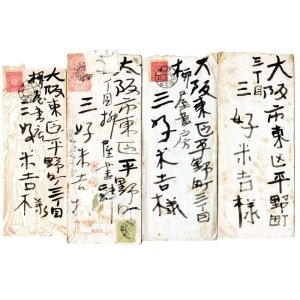 大阪市東区平野町
三丁目
三好米吉様
大阪東区平野町三丁目
柳屋書房
三好米吉様
大阪市東区平野町
三丁目柳屋書
三好米吉様
大阪東区平野町三丁目
柳屋書房
三好米吉様